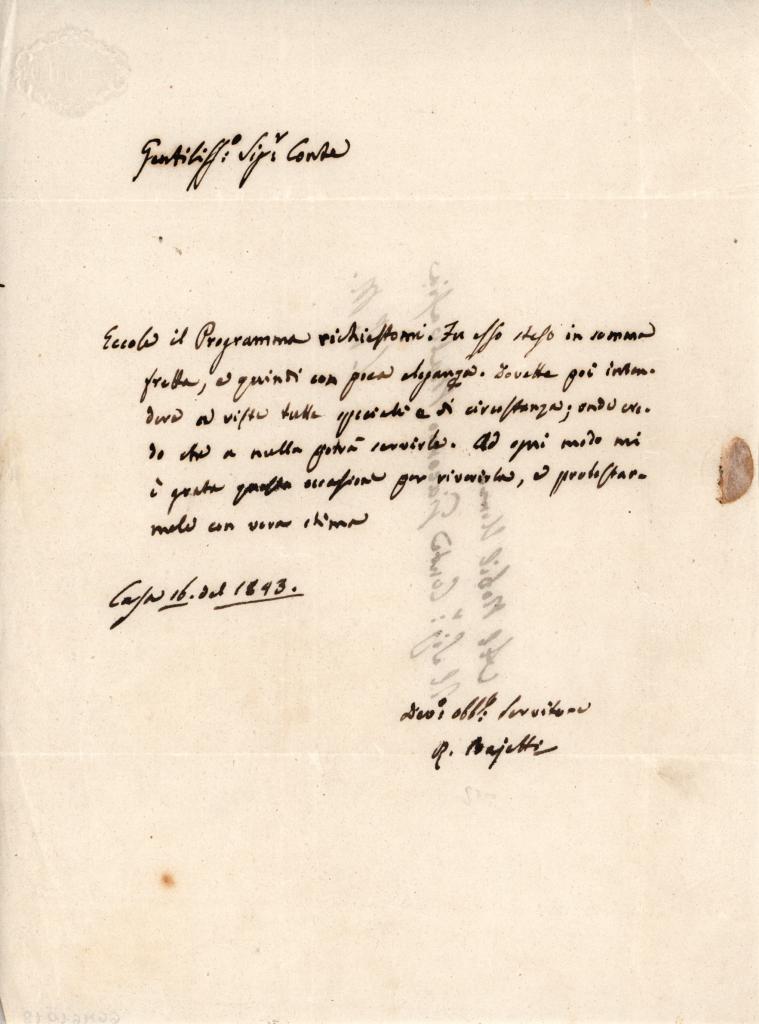 Gentiliss:º Sig:r Conte
Eccole il Programma richiestomi. Fu esso steso in somma
fretta, e quindi con poca eleganza. Dovette poi inten-
dere a viste tutte speciali e di circostanza; onde cre-
do che a nulla potrà servirle. Ad ogni modo mi
è grata questa occasione per riverirla, e protestar-
mele con vera stima
Casa 16. del 1843.
Dev:º obbl:º Servitore
R. Bajetti